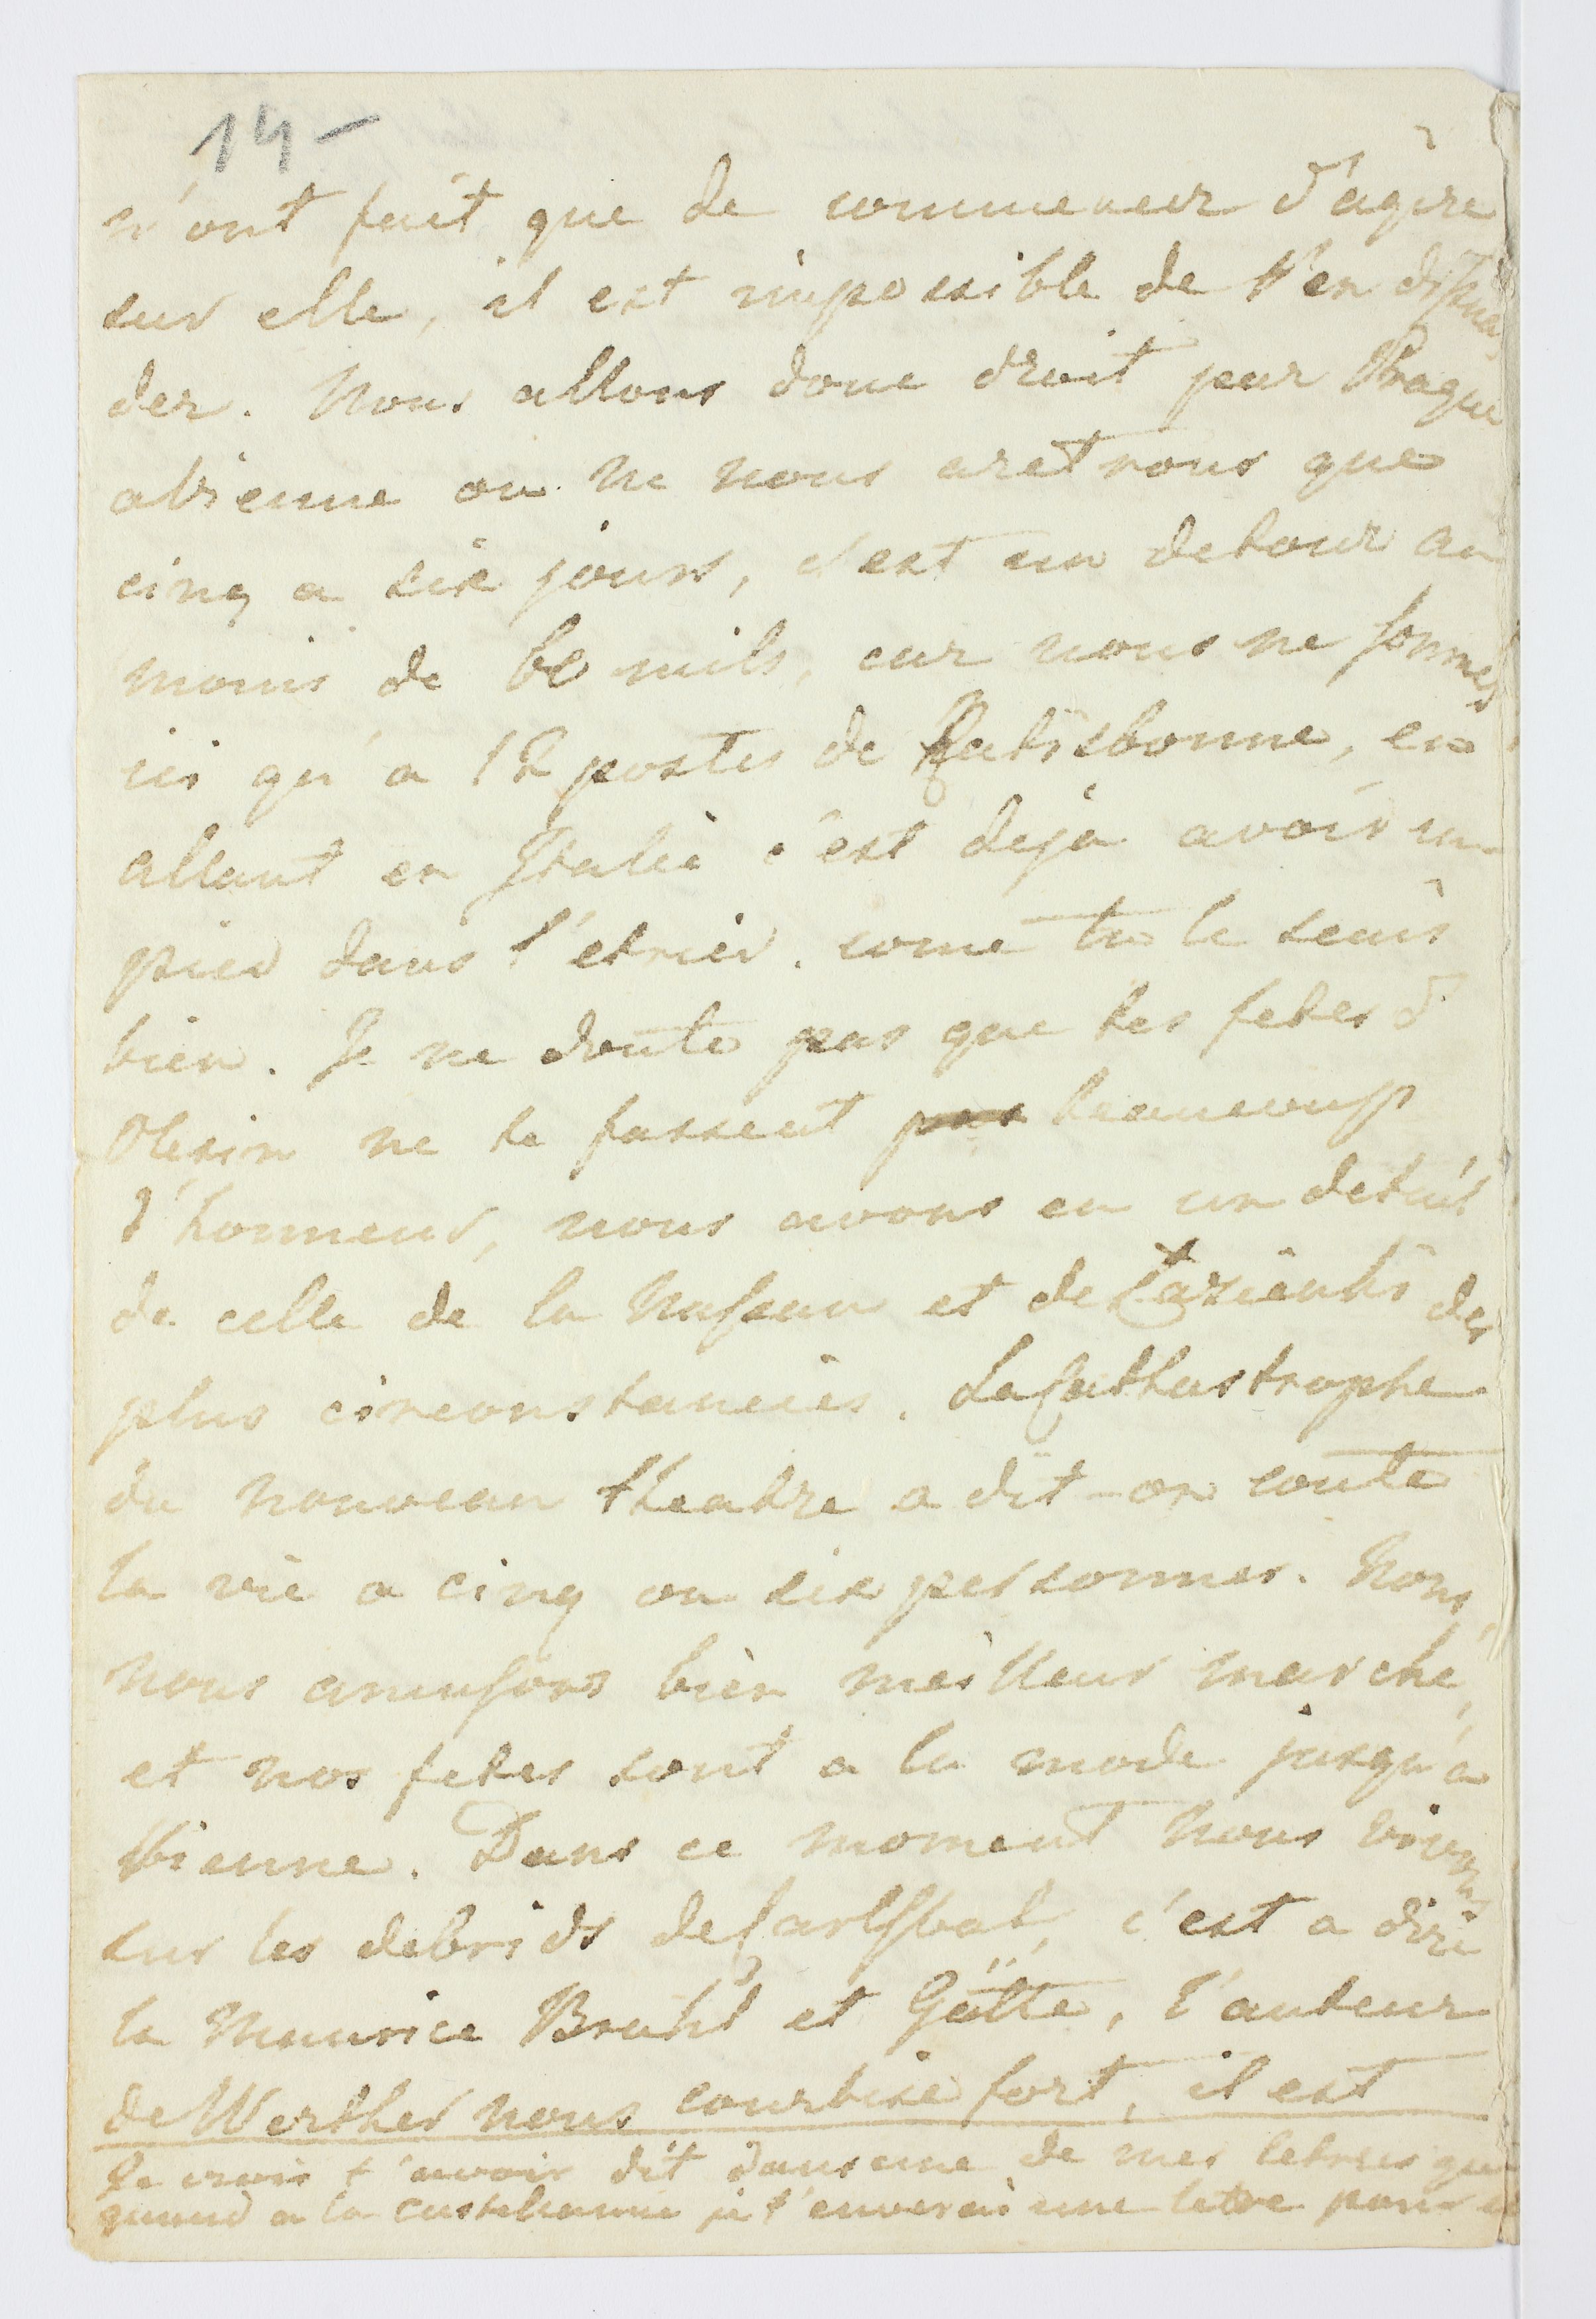 14 -
n'ont fait que de commencer d'agire
sur elle, il est impossible de t'en dissua
der. Nous allons donc droit par Prague
a Vienne ou ne nous aretrons que
cinq a six jours, c'est un detour au
moins de 60 mils, car nous ne sommes
ici qu'a 12 postes de Ratisbonne, en
allant en Italie c'est deja avoir un
pied dans l'etrier, come tu le sens
bien. Je ne doute pas que tes fetes d
Olesin ne te fassent pas beaucoup
d'honneur, nous avons eu un detail
de celle de la Nassau et de Lazienki des
plus circonstanciés. La Cathastrophe
du nouveau theatre a dit-on couté
la vie a cinq ou six personnes. Nous
nous amusons bien meilleur marché,
et nos fetes sont a la mode jusqu'a
Vienne. Dans ce moment nous vivons
sur les debrids de Carlsbad, c'est a dire
la Maurice Bruhl et Götte, l'auteur
de Werther nous courtise fort, il est
Je crois t'avoir dit dans une de mes letres que
quand a la castelanie je t'enverai une letre pour